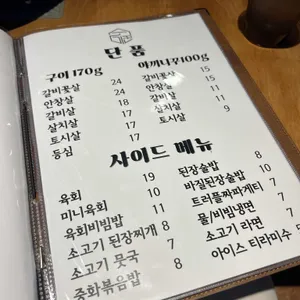 단 품
구이 170g
갈비꽃살 24
안창살 24
갈비살 18
살치살 17
토시살 17
등심 17
아끼니꾸 100g
갈비꽃살 15
안창살 15
갈비살 11
살치살 11
토시살 9
사이드 메뉴
육회 19
미니육회 10
육회비빔밥 11
소고기 된장찌개 8
소고기 뭇국 7
중화볶음밥 8
된장술밥 8
바질된장술밥 10
트러플짜파게티 7
물/비빔냉면 8
소고기 라면 7
아이스 티라미수